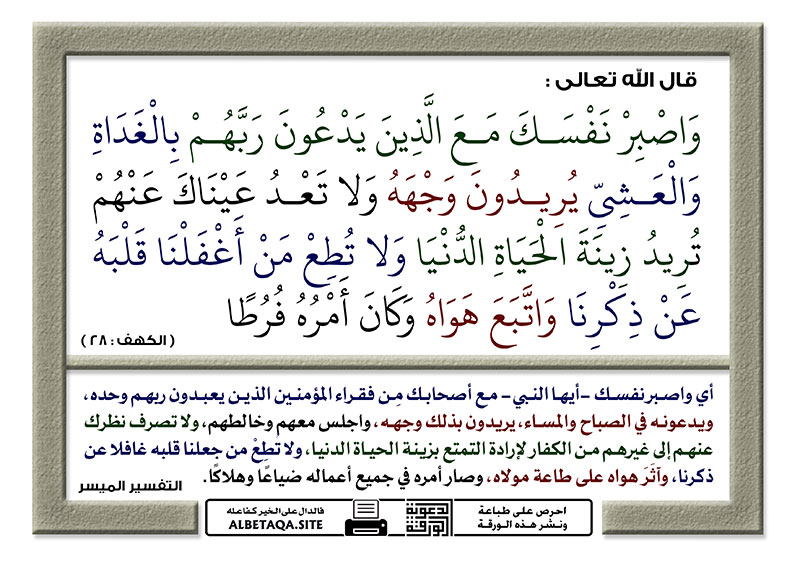 قال الله تعالى :
وَاصْبِرْ نَفْسَكَ مَعَ الَّذِينَ يَدْعُونَ رَبَّهُمْ بِالْغَدَاةِ
وَالْعَشِيِّ يُرِيدُونَ وَجْهَهُ وَلا تَعْدُ عَيْنَاكَ عَنْهُمْ
تُرِيدُ زِينَةَ الْحَيَاةِ الدُّنْيَا وَلا تُطِعْ مَنْ أَغْفَلْنَا قَلْبَهُ
عَنْ ذِكْرِنَا وَاتَّبَعَ هَوَاهُ وَكَانَ أَمْرُهُ فُرُطًا
( الكهف : ٢٨ )
أي واصبرنفسك -أيها النبي- مع أصحابك مِن فقراء المؤمنين الذين يعبدون ربهم وحده،
ويدعونه في الصباح والمساء، يريدون بذلك وجهه، واجلس معهم وخالطهم، ولا تصرف نظرك
عنهم إلى غيرهم من الكفار لإرادة التمتع بزينة الحياة الدنيا، ولا تُطِعْ من جعلنا قلبه غافلا عن
ذكرنا، وآثَرَ هواه على طاعة مولاه، وصار أمره في جميع أعماله ضياعًا وهلاكًا.
التفسير الميسر
احرص على طباعة
ونشر هذه الورقة
الورقة
الدعوية
فالدال على الخير كفاعله
ALBETAQA.SITE